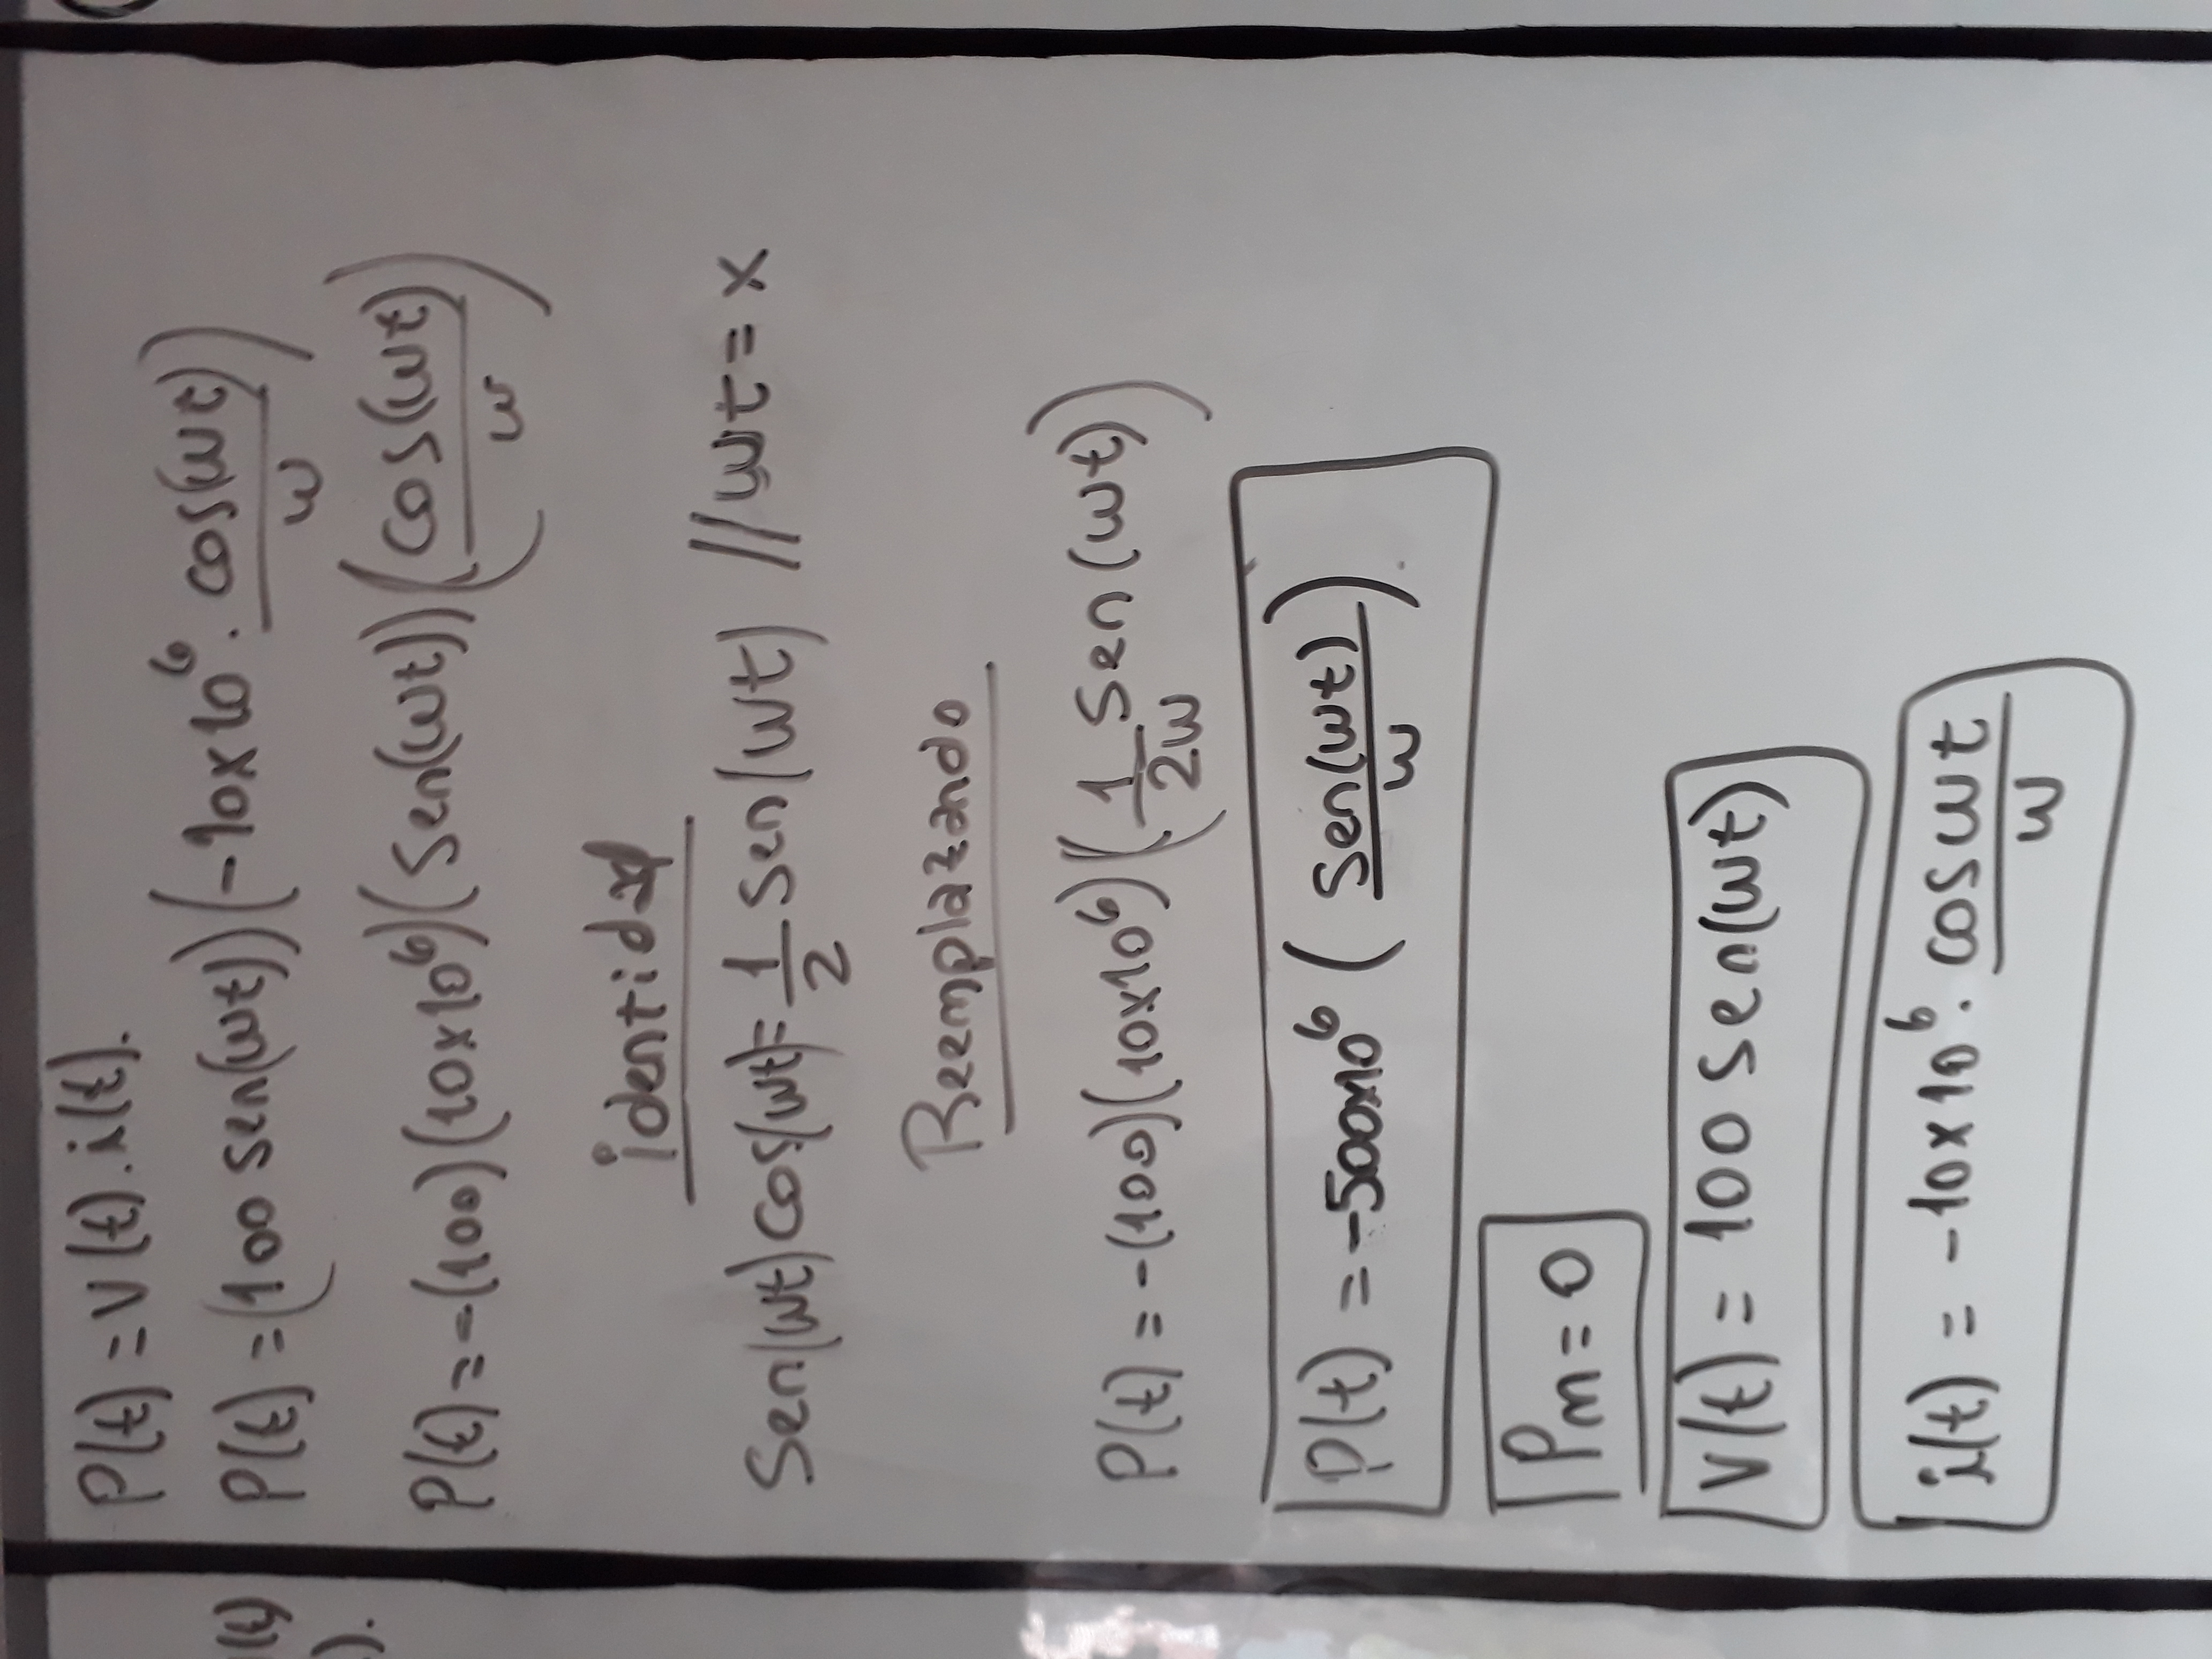 P(t) = v(t).i(t).
P(t) = (100 sen(wt))(-10x10⁶. cos(wt)/w)
(t)
).
P(t) = -(100)(10x10⁶)(sen(wt))(cos(wt)/w)
identidad
Sen(wt)cos(wt)= 1/2 sen(wt) // wt = x
Reemplazando
P(t) = -(100)(10x10⁶)(1/2w sen(wt))
P(t) = -500x10⁶ (sen(wt)/w).
Pm = 0
V(t) = 100 sen(wt)
i(t) = -10x10⁶. cos wt/w